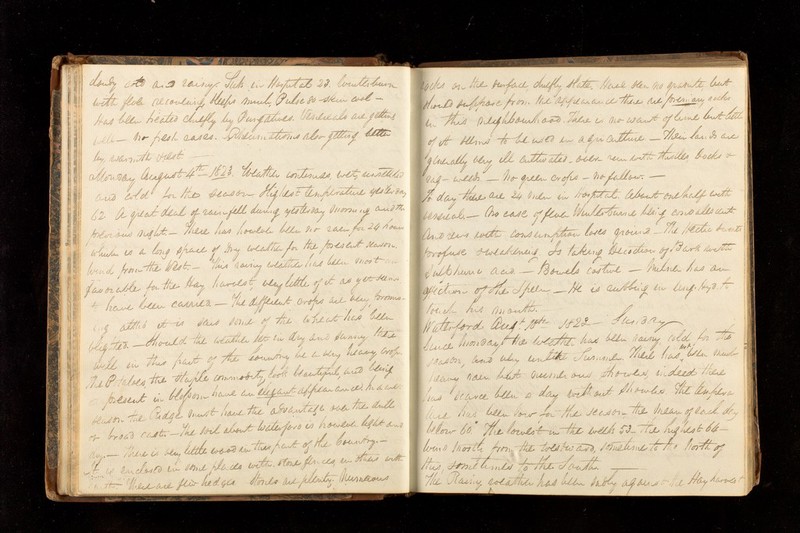 cloudy cold and rainy. Sick in Hospital 23. Winterburn
with flux recovering sleeps much, Pulse 80 skin cool —
Has been treated chiefly by Purgatives. Venereals are getting
well — no fresh cases. Pneumonias also getting better
by warmth rest —
Monday August 4th 1823. Weather continues wet, unsettled
and cold for the season. Highest temperature yesterday
62. A great deal of rain fell during yesterday morning and the
previous night — There has however been no rain for 24 hours
which is a long space of dry weather for the present season
wind from the West — This rainy weather has been most un
favorable for the Hay harvest, very little of it as yet seems
to have been carried — The different crops are very promis-
ing altho' it is said some of the wheat has been
blighted — Should the weather set in dry and sunny there
will in this part of the country be a very heavy crop
The Potatoes the staple commodity look beautiful, and being
at present in blossom have an elegant appearance in a wet
season the Ridge must have the advantage over the drills
or broad cast — The soil about Waterford is however light and
dry — There is very little wood in this part of the Country —
It is enclosed in some places with stone fences, in others with
There are few hedges. Stones are plenty. Numerous
rocks on the surface, chiefly slate, have seen no granite but
should suppose from the appearance there are primary rocks
in this neighbourhood. There is no want of lime but little
of it seems to be used in agriculture — Their lands are
generally very ill cultivated, over run with thistles Docks &
rag-weeds — No green crops — no fallow —
To day there are 24 men in hospital about one half with
venereal — No case of flux Winterburne being convalescent
with consumption loses ground — The Hectic sweats
profuse & weakening. Is taking decoction of Bark with
Sulphuric acid — Bowels costive — has an
affection of the Spleen — He is rubbing in ung. hyd. to
touch his mouth.
Waterford Augt 10th 1823 Sunday
Since Monday the weather has been rainy cold for the
season, and very unlike Summer. There has not been much
heavy rain but numerous showers, indeed there
has scarce been a day without showers. The tempera
ture has been low for the season the mean of each day
below 60°. The lowest in the week 53 — The highest 64 —
wind mostly from the Westward, sometimes to the North of
this, sometimes to the South —
The Rainy weather has been sadly against the Hay harvest